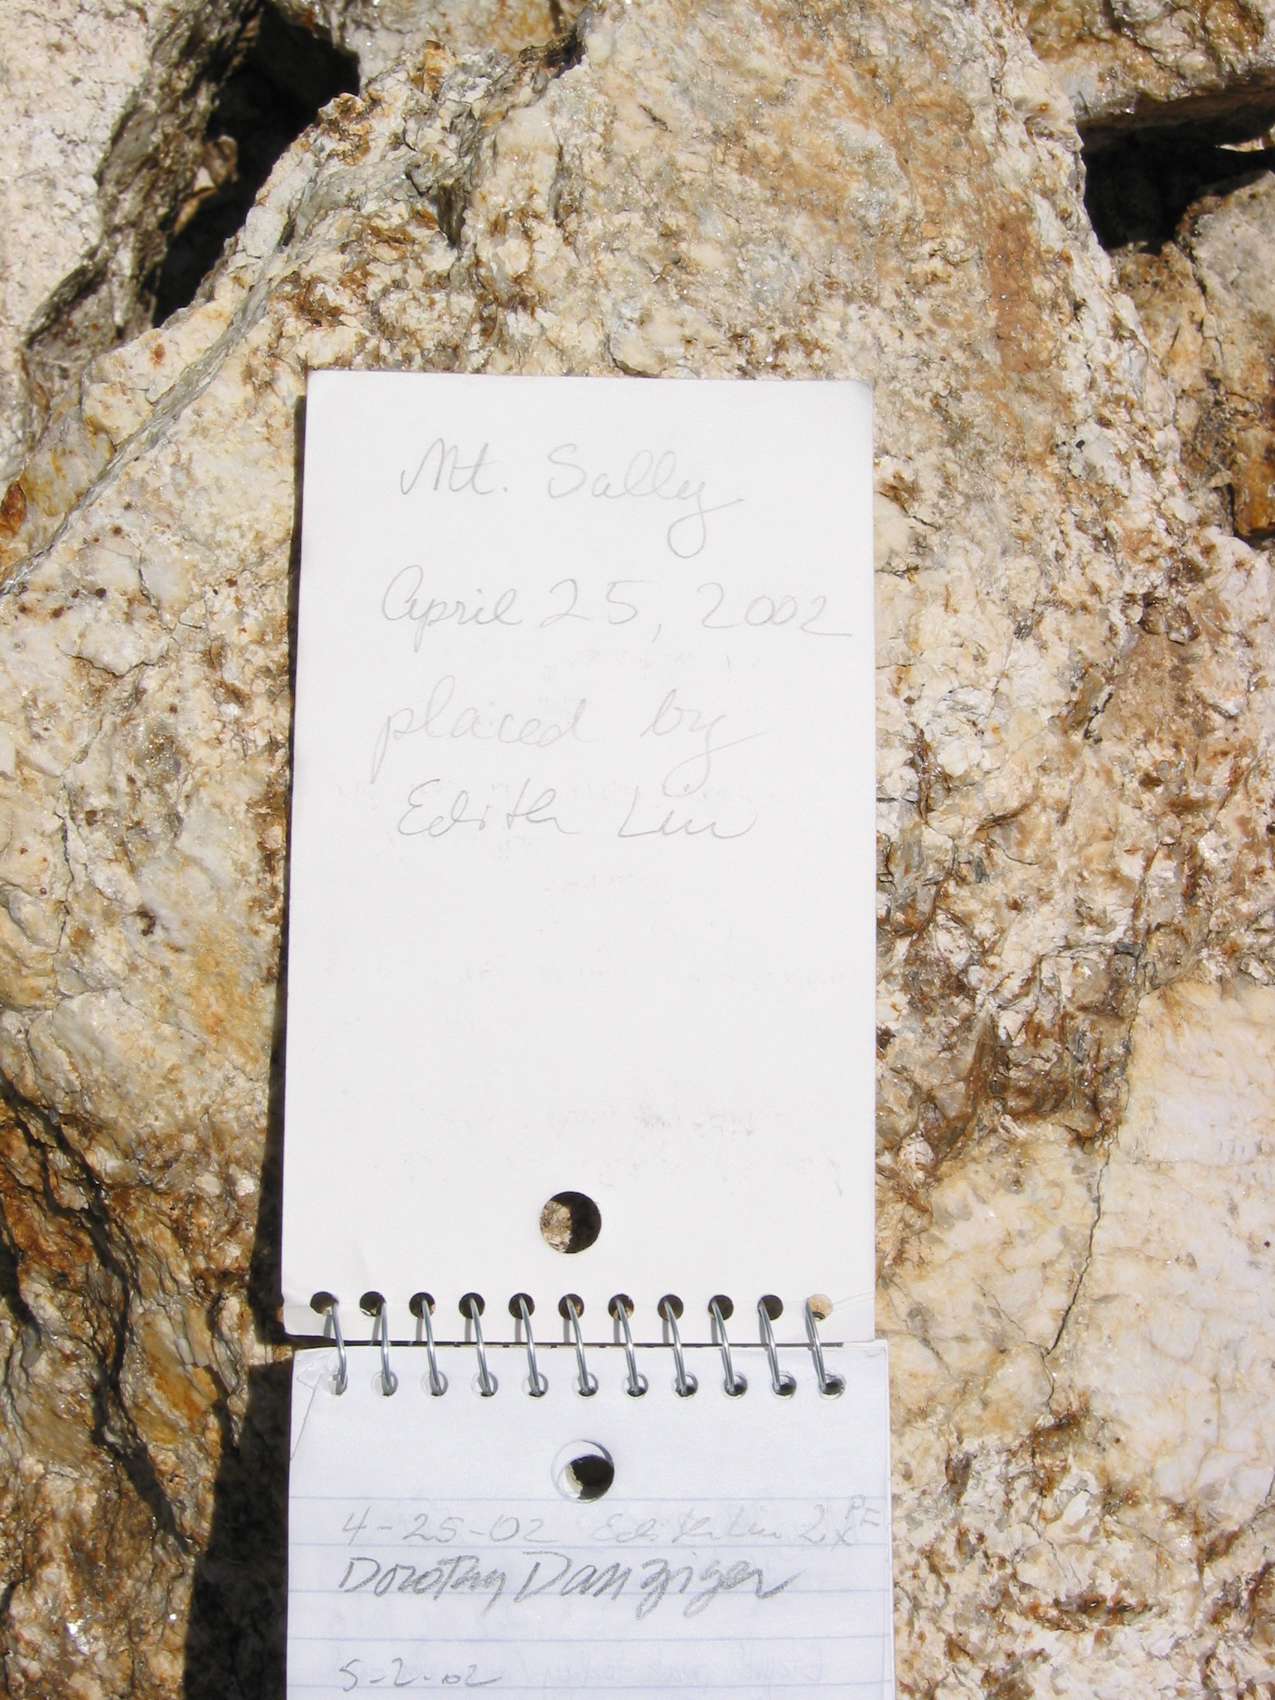 Mt. Sally
April 25, 2002
placed by
Edith Liu
4-25-02 Edith Liu 2x
Dorothy Danziger
5-2-02